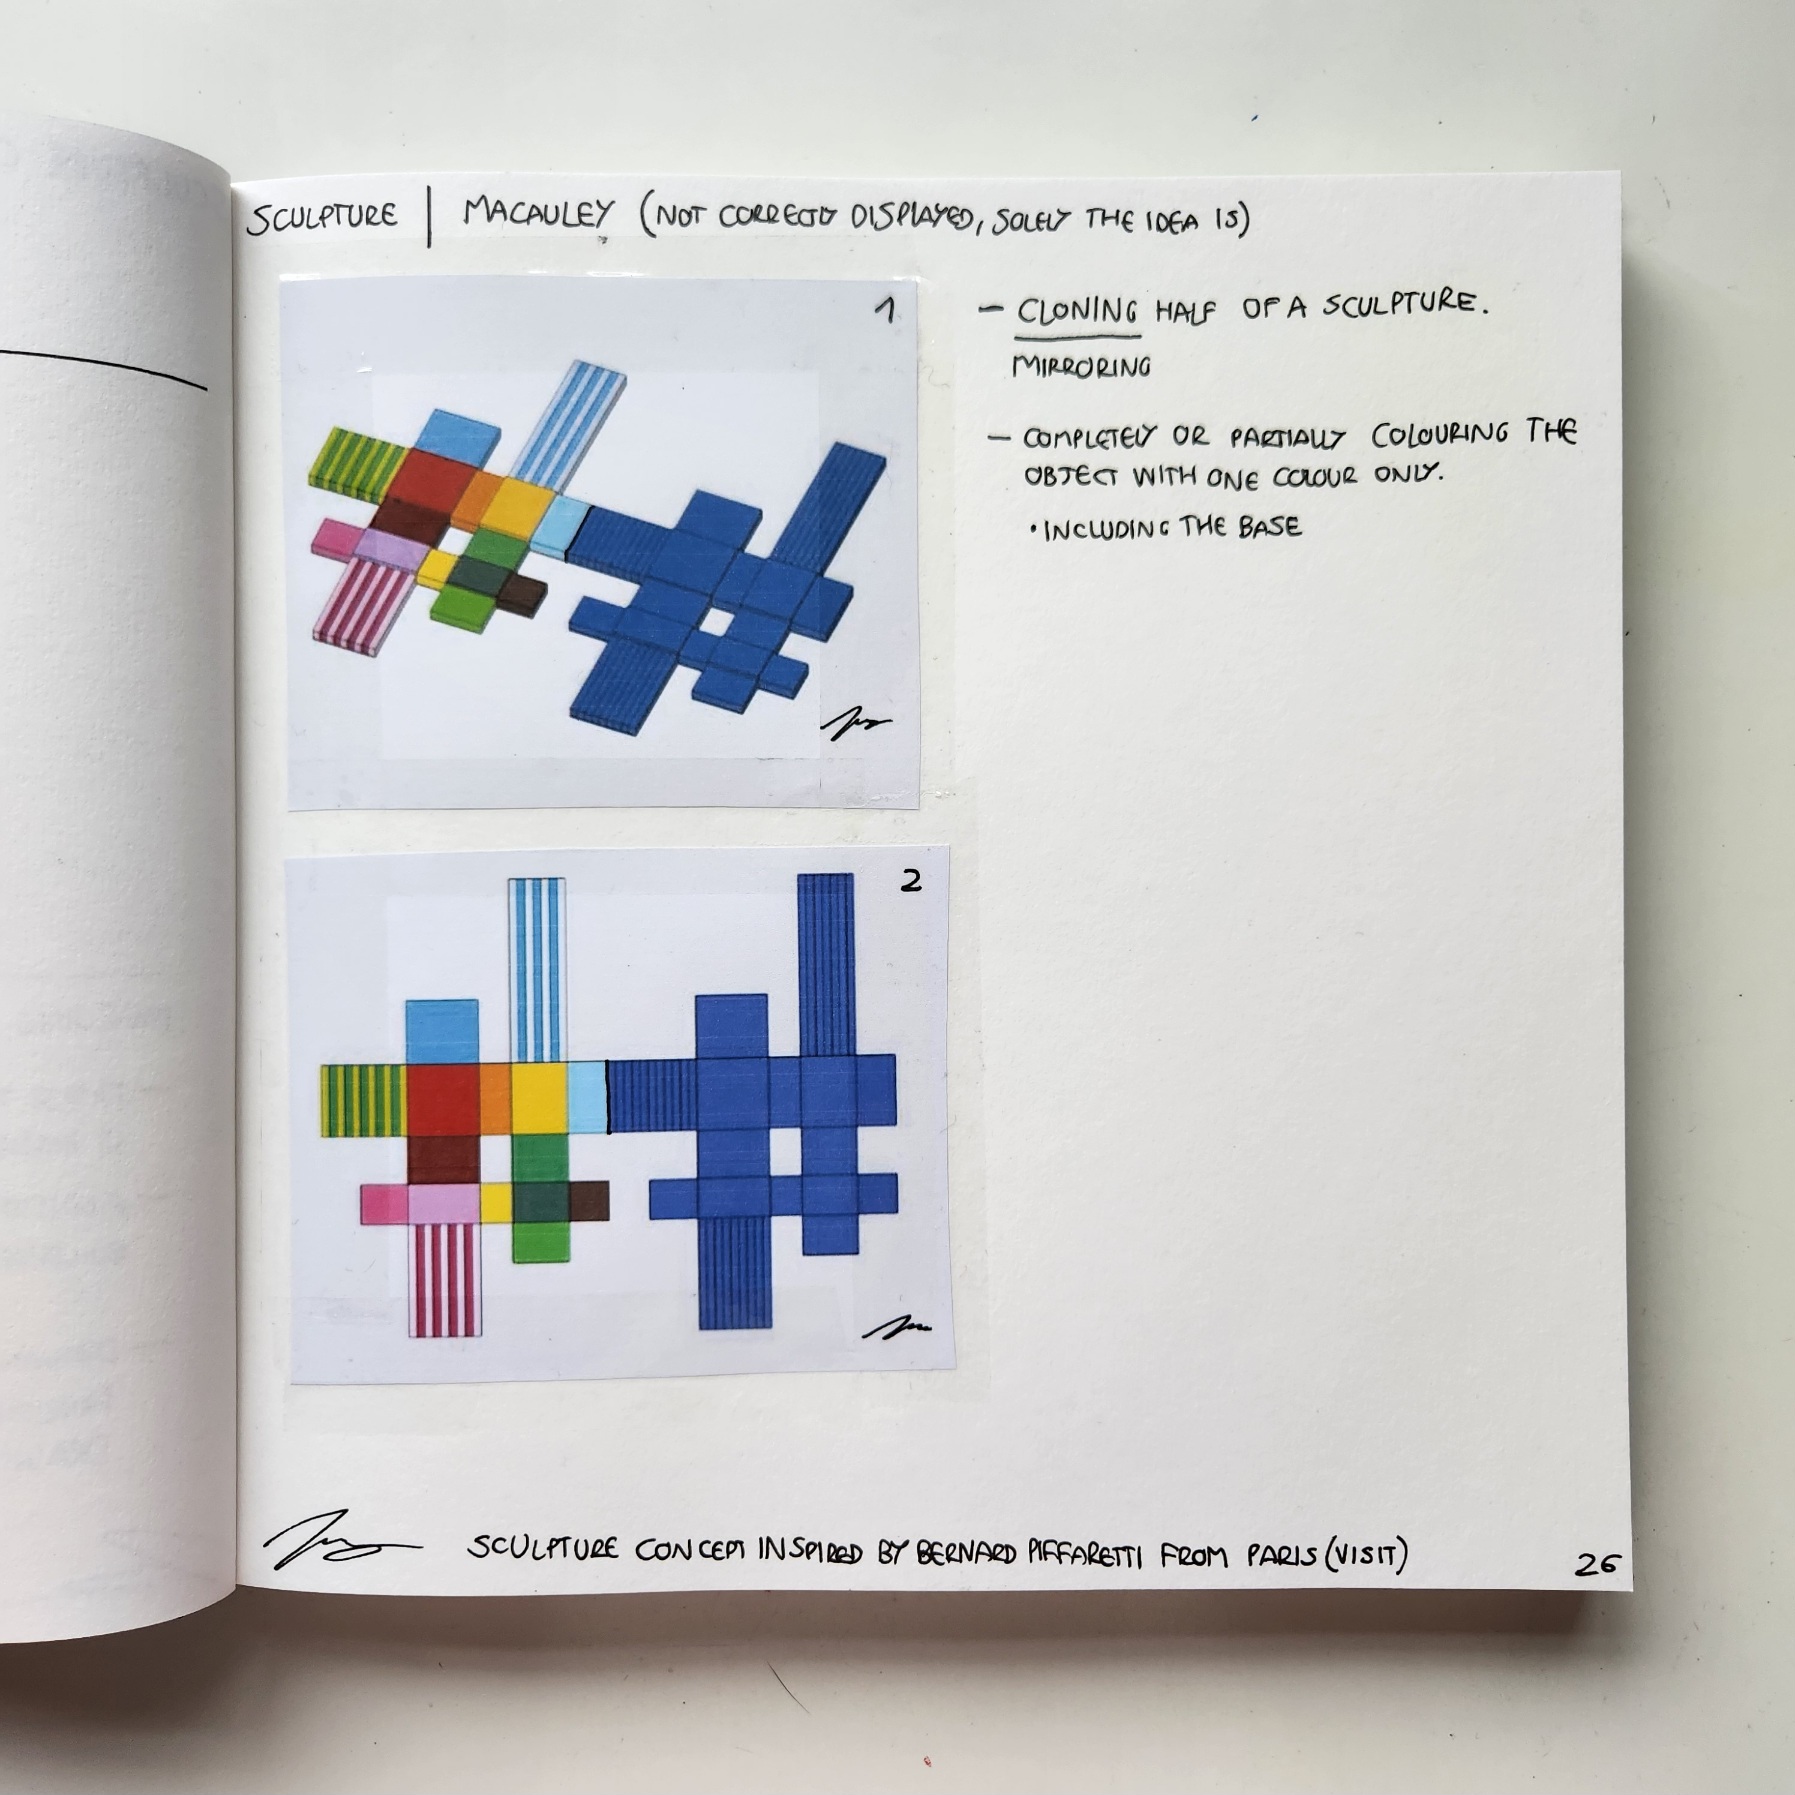 SCULPTURE | MACAULEY (NOT CORRECTLY DISPLAYED, SOLELY THE IDEA IS)
1
– CLONING HALF OF A SCULPTURE.
MIRRORING
– COMPLETELY OR PARTIALLY COLOURING THE
OBJECT WITH ONE COLOUR ONLY.
• INCLUDING THE BASE
2
SCULPTURE CONCEPT INSPIRED BY BERNARD PIFFARETTI FROM PARIS (VISIT)
26